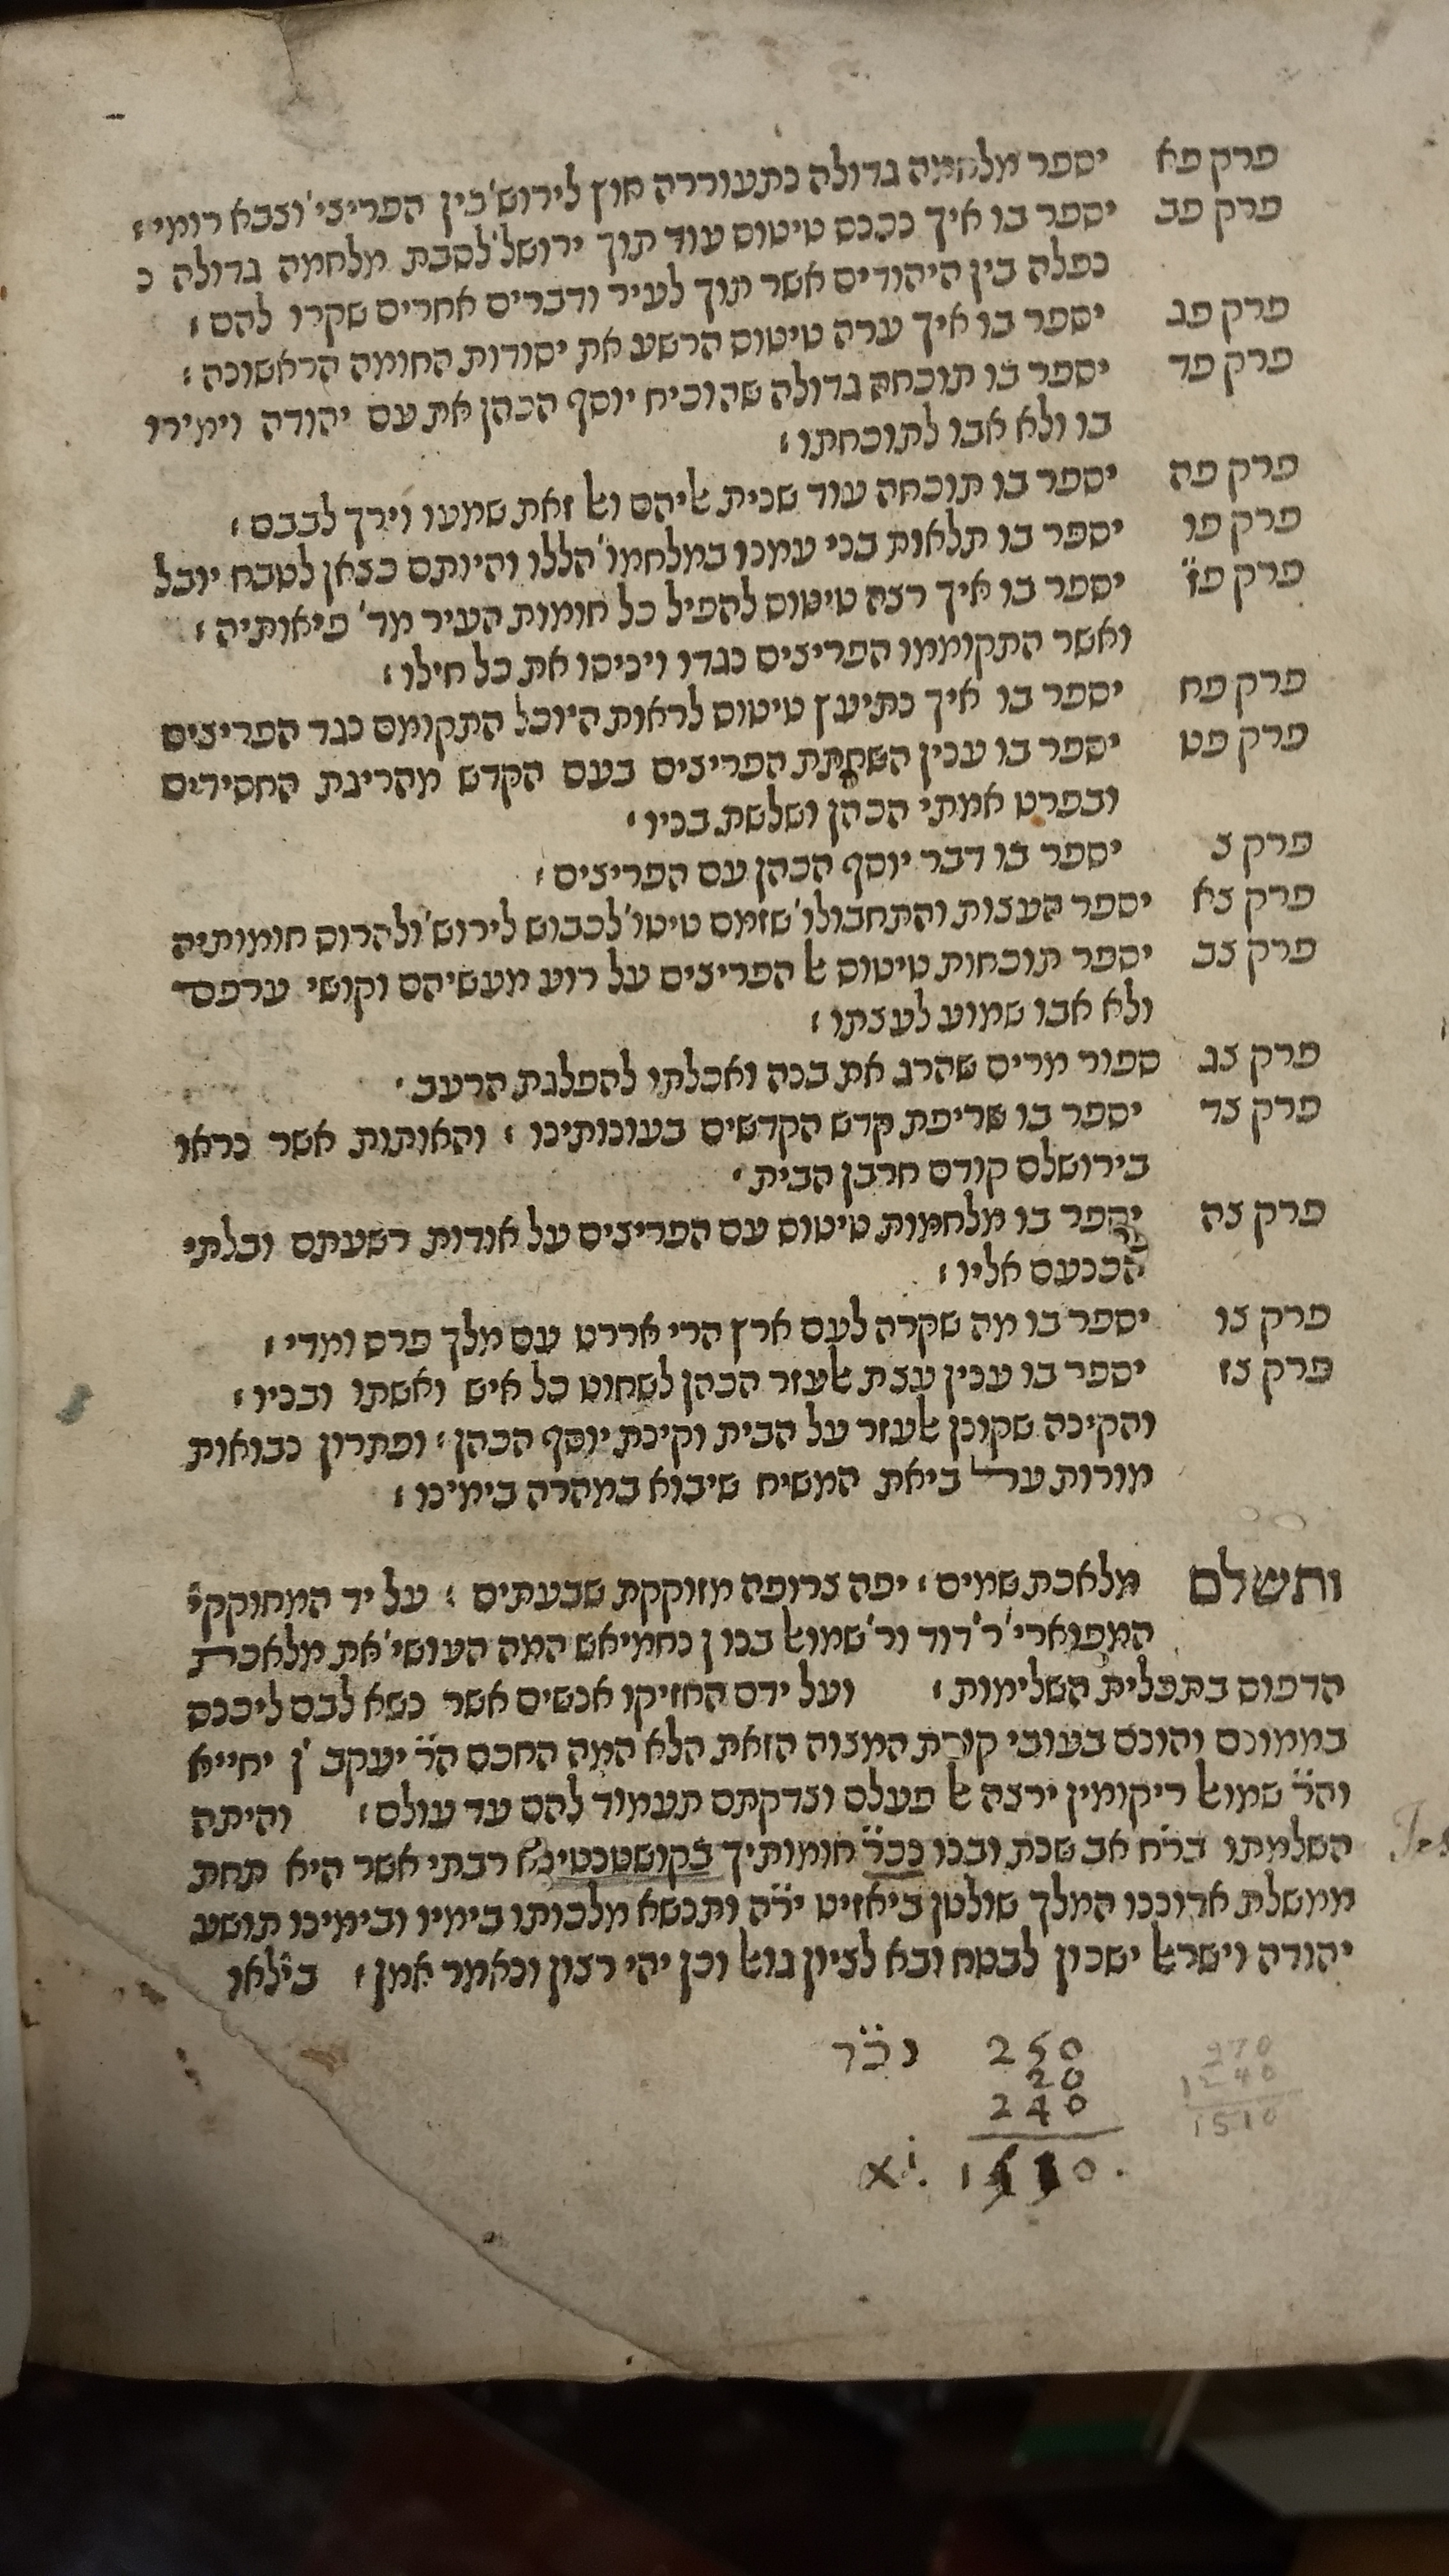 פרק פא יספר מלחמה גדולה נתעוררה חוץ לירוש' בין הפריצי' וצבא רומי :
פרק פב יספר בו איך נכנס טיטוס עוד תוך ירושל' לסבת מלחמה גדולה נ
נפלה בין היהודים אשר תוך לעיר ודברים אחרים שקרו להם :
פרק פג יספר בו איך ערה טיטוס הרשע את יסודות החומה הראשונה :
פרק פד יספר בו תוכחה גדולה שהוכיח יוסף הכהן את עם יהודה וימירו
בו ולא אבו לתוכחתו :
פרק פה יספר בו תוכחה עוד שנית אליהם ואל זאת שמעו וירך לבבם :
פרק פו יספר בו תלאות בני עמנו במלחמו' הללו והיותם כצאן לטבח יובל
פרק פז יספר בו איך רצה טיטוס להפיל כל חומות העיר מד' פיאותיה :
ואשר התקוממו הפריצים נגדו ויניסו את כל חילו :
פרק פח יספר בו איך נתיעץ טיטוס לראות היוכל התקומם נגד הפריצים
פרק פט יספר בו ענין השחתת הפריצים בעם הקדש מהריגת החסידים
ובפרט אמתי הכהן ושלשת בניו :
פרק צ יספר בו דבר יוסף הכהן עם הפריצים :
פרק צא יספר העצות והתחבולו' שזמם טיטו' לכבוש לירוש' ולהרוס חומותיה
פרק צב יספר תוכחות טיטוס אל הפריצים על רוע מעשיהם וקושי ערפם
ולא אבו שמוע לעצתו :
פרק צג ספור מרים שהרג את בנה ואכלתו להפלגת הרעב :
פרק צד יספר בו שריפת קדש הקדשים בעונותינו : והאותות אשר נראו
בירושלם קודם חרבן הבית :
פרק צה יספר בו מלחמות טיטוס עם הפריצים על אודות רשעתם ובלתי
הכנעם אליו :
פרק צו יספר בו מה שקרה לעם ארץ הרי אררט עם מלך פרס ומדי :
פרק צז יספר בו ענין עצת אלעזר הכהן לשחוט כל איש ואשתו ובניו :
והקינה שקונן אלעזר על הבית וקינת יוסף הכהן : ופתרון נבואות
מורות על ביאת המשיח שיבוא במהרה בימינו :
ותשלם מלאכת שמים : יפה צרופה מזוקקת שבעתים : על יד המחוקקי'
המפוארי' ר' דוד ור' שמואל בנו ן נחמיאש המה העושי' את מלאכת
הדפוס בתכלית השלימות : ועל ידם החזיקו אנשים אשר נשא לבם ליכנס
בממונם והונם בעובי קורת המצוה הזאת הלא המה החכם הר״ יעקב ן' יחייא
והר״ שמואל ריקומין ירצה אל פעלם וצדקתם תעמוד להם עד עולם : והיתה
השלמתו בר״ח אב שנת ובנו בני נכר חומותיך בקושטנטינא רבתי אשר היא תחת
ממשלת אדוננו המלך שולטן ביאזיט יר״ה ותנשא מלכותו בימיו ובימינו תושע
יהודה וישראל ישכון לבטח ובא לציון גואל וכן יהי רצון ונאמר אמן : בילאו
נכר 250 270
20 1240
240 1510